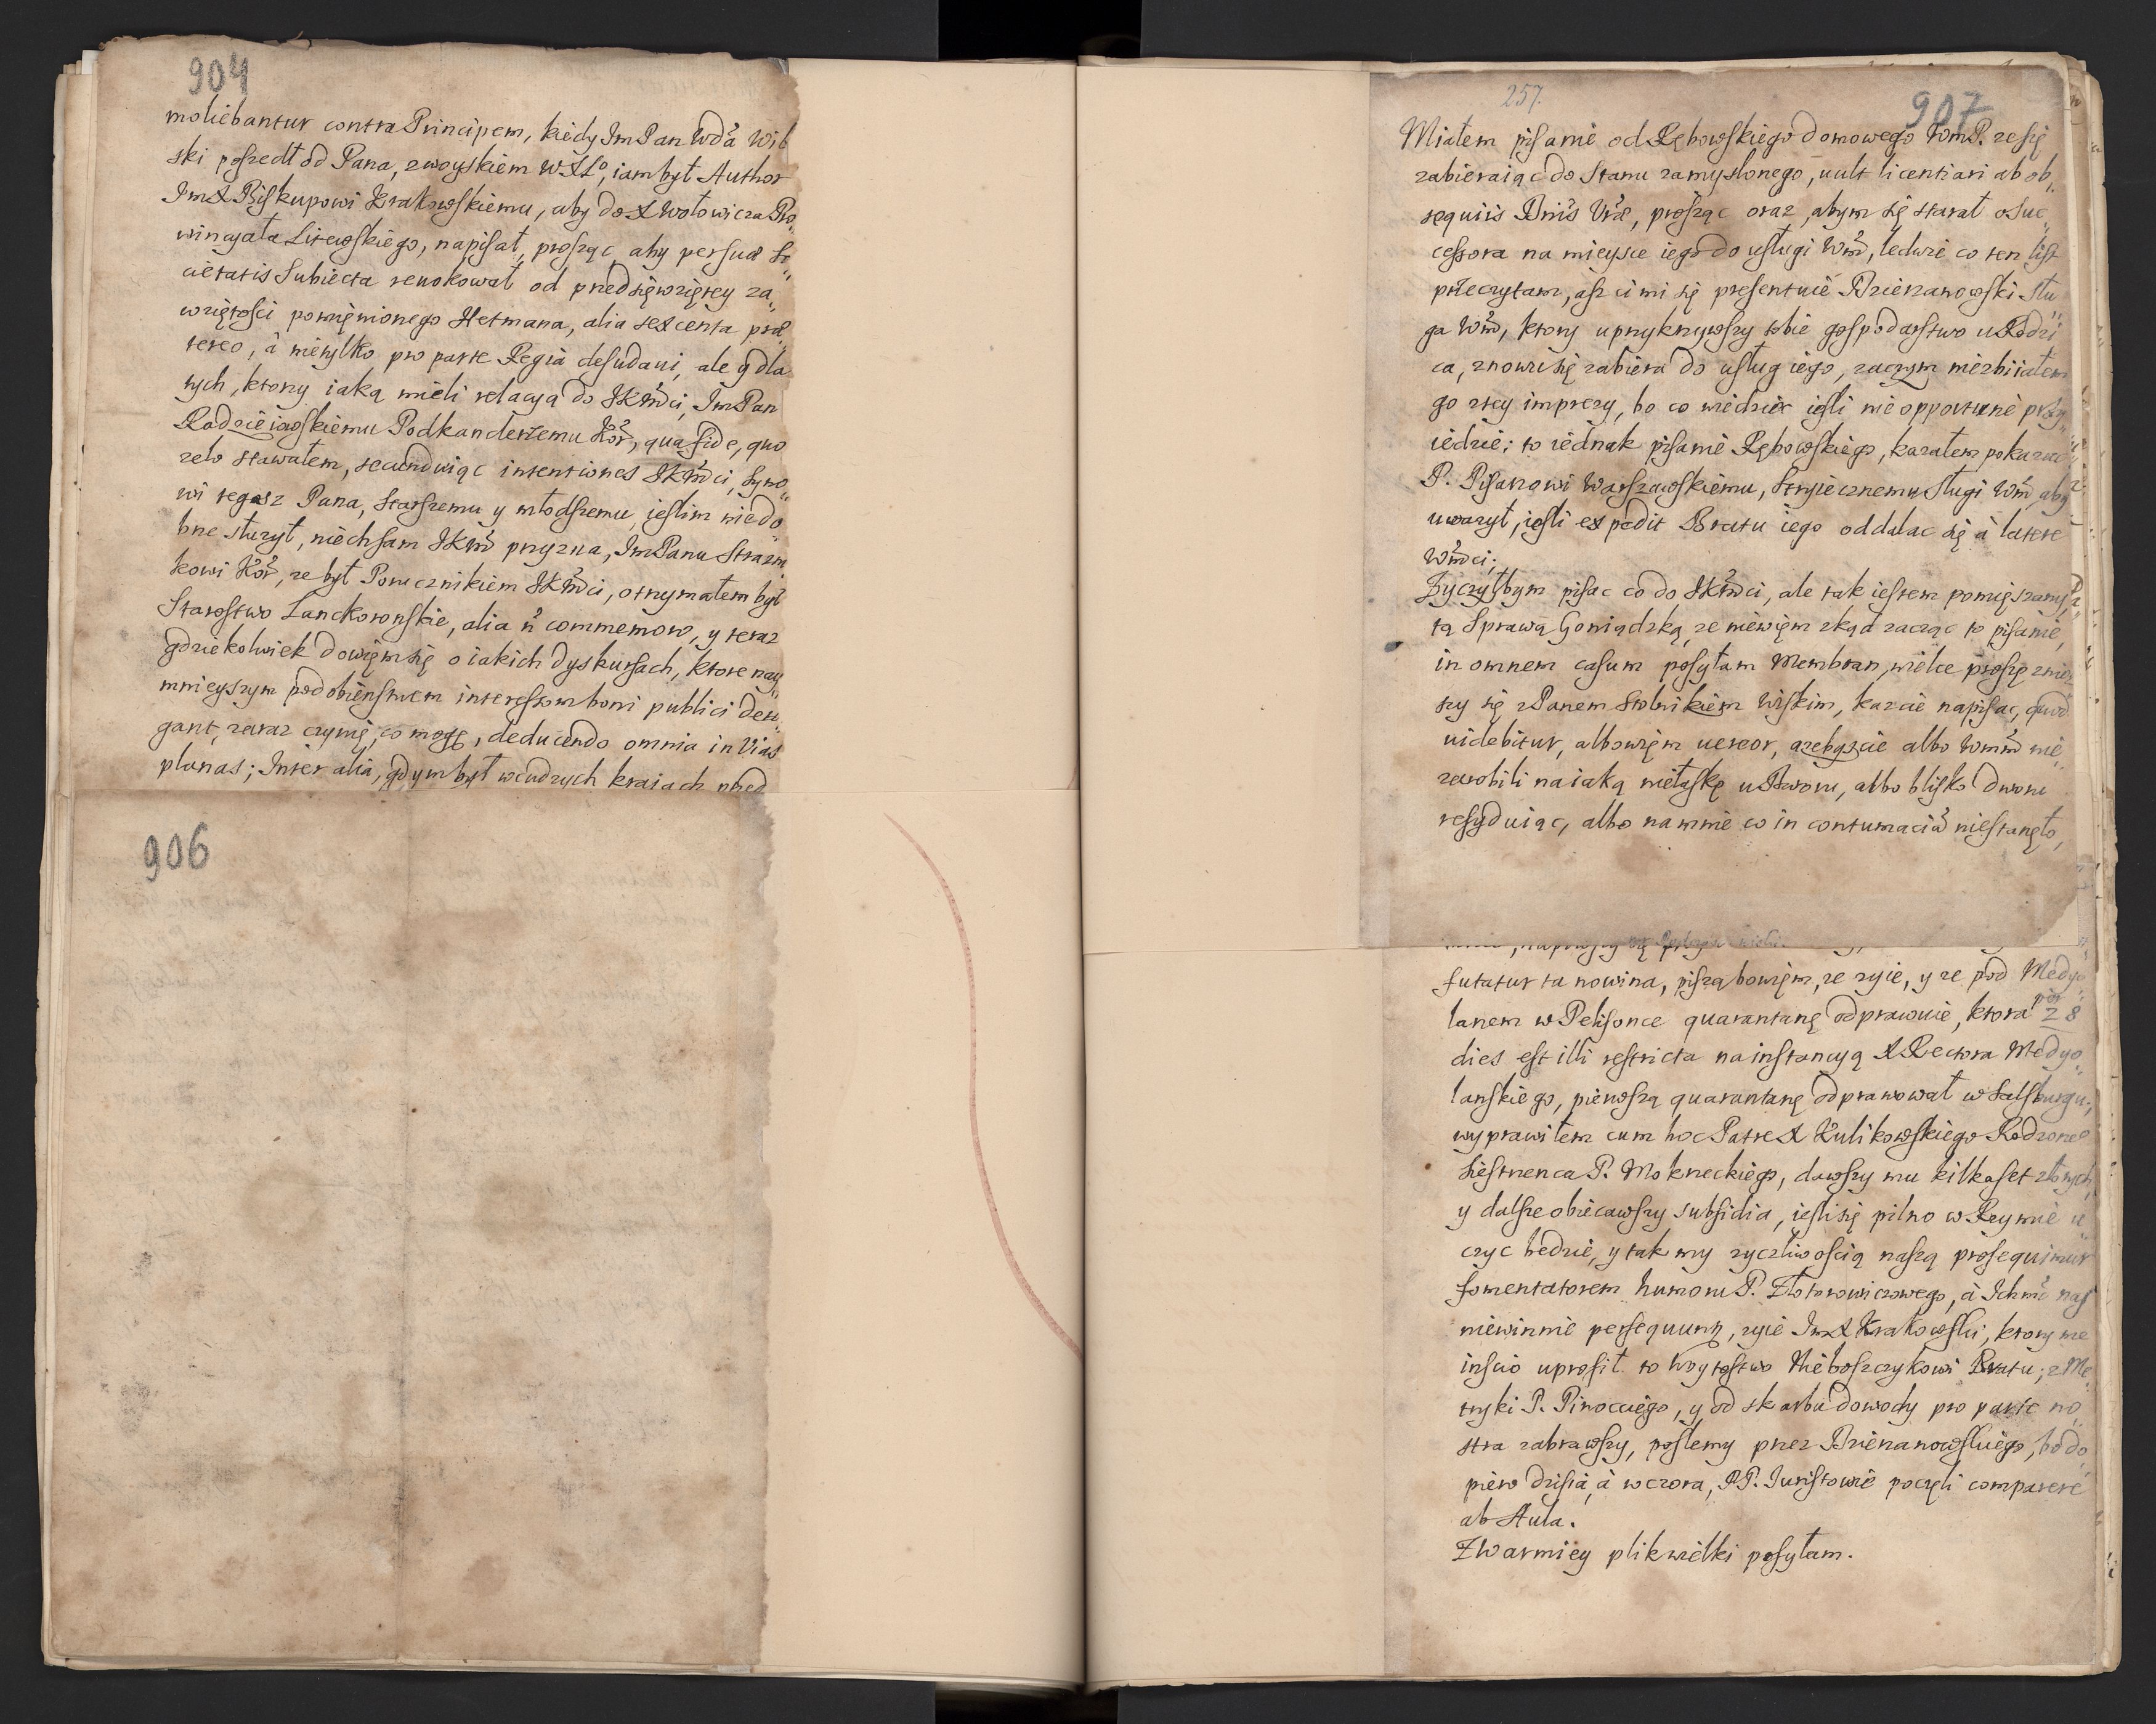 904
moliebantur contra Principem, kiedy Im Pan Wda Wil
ski poszedł od Pana, z woyskiem WXLo, iam był Author
Im X Biskupowi Krakowskiemu, aby do X Wołowicza Pro„
wincyała Litewskiego, napisał, prosząc, aby persua So„
cietatis Subiecta reuokował od przedsięwziętey za„
wziętości pomięnionego Hetmana, alia sexcenta præ„
tereo, à nietylko pro parte Regia desudaui, ale y dla
tych, ktorzy iaką mieli relacyą do JKMci, Im Pan
Radzieiowskiemu Podkanclerzemu Kor, qua fide, quo
zelo stawałem, secunduiąc intentiones JKMci, Syno„
wi tegosz Pana, Starszemu y młodszemu, ieślim niedo„
bne służył, niech sam JKM przyzna, Im Panu Strazni
kowi Kor, ze był Porucznikiem JKMci, otrzymałem był
Starostwo Lanckoronskie, alia n commemoro, y teraz
gdziekolwiek dowięm się o iakich dyskursach, ktore nay„
mnieyszym podobięnstwem interessom boni publici dero„
gant, zaraz czynię, co mogę, deducendo omnia in Vias
planas; Inter alia, gdym był w cudzych kraiach przed
906
257.
907
Miałem pisanie od Rębowskiego domowego WmP. ze się
zabieraiąc do Stanu zamyslonego, uult licentiari ab ob„
sequiis Dnis Vræ, prosząc oraz, abym się starał o Suc„
cessora na mieysce iego do usługi Wm, ledwie co ten list
przeczytam, asz ci mi się presentuie Dzierzanowski Słu„
ga Wm, ktory uprzykrzywszy sobie gospodarstwo u Rodzi„
ca, znowu się zabiera do usług iego, zaczym niezbiiałem
go z tey imprezy, bo co wiedziec ieśli nie opportunè przy„
iedzie; to iednak pisanie Rębowskiego, kazałem pokazac
P. Pisarzowi Warszawskiemu, Stryiecznemu Sługi Wm aby
uwazył, ieśli expedit Bratu iego oddalac się à latere
Wmci;
Zyczyłbym pisac co do JKMci, ale tak iestem pomięszany
tą Sprawą Goniądzką, ze niewięm zkąd zacząc to pisanie,
in omnem casum posyłam Membran, wielce proszę znio„
szy się z Panem Stolnikiem Wiskim, kazcie napisac, quod
uidebitur, albowięm uereor, azebyscie albo Wmm nie„
zarobili na iaką niełaskę u Dworu, albo blisko dworu
residuiąc, albo na mnie co in contumaciã niestanęło,
futatur ta nowina, piszą bowięm, ze zyie, y ze pod Medyo„
lanem w Pelisonce quarantanę odprawuie, ktora 28
dies est illi restricta na instancyą X Rectora Medyo„
lanskiego, pierwszą quarantanę odprawował w Salsburgu;
wyprawiłem cum hoc Patre X Kulikowskiego Rodzoneo
Siestrzenca P. Mokrzeckiego, dawszy mu kilkaset złotych,
y dalsze obiecawszy subsidia, ieśli się pilno w Rzymie u„
czyc bedzie, y tak my zyczliwoscią naszą prosequimur
fomentatorem humoru P. Złotorowiczowego, à Ichm nas
niewinnie persequunr, zyie Im X Krakowski, ktory me
inscio uprosił to Woytostwo Nieboszczykowi Bratu; z Me„
tryki P. Pinocciego, y od skarbu dowody pro parte no„
stra zabrawszy, poslemy przez Dzierzanowskiego, bo do„
piero dzisia, à wczora, PP. Juristowie poczęli comparere
ab Aula.
Z Warmiey plik wielki posyłam.